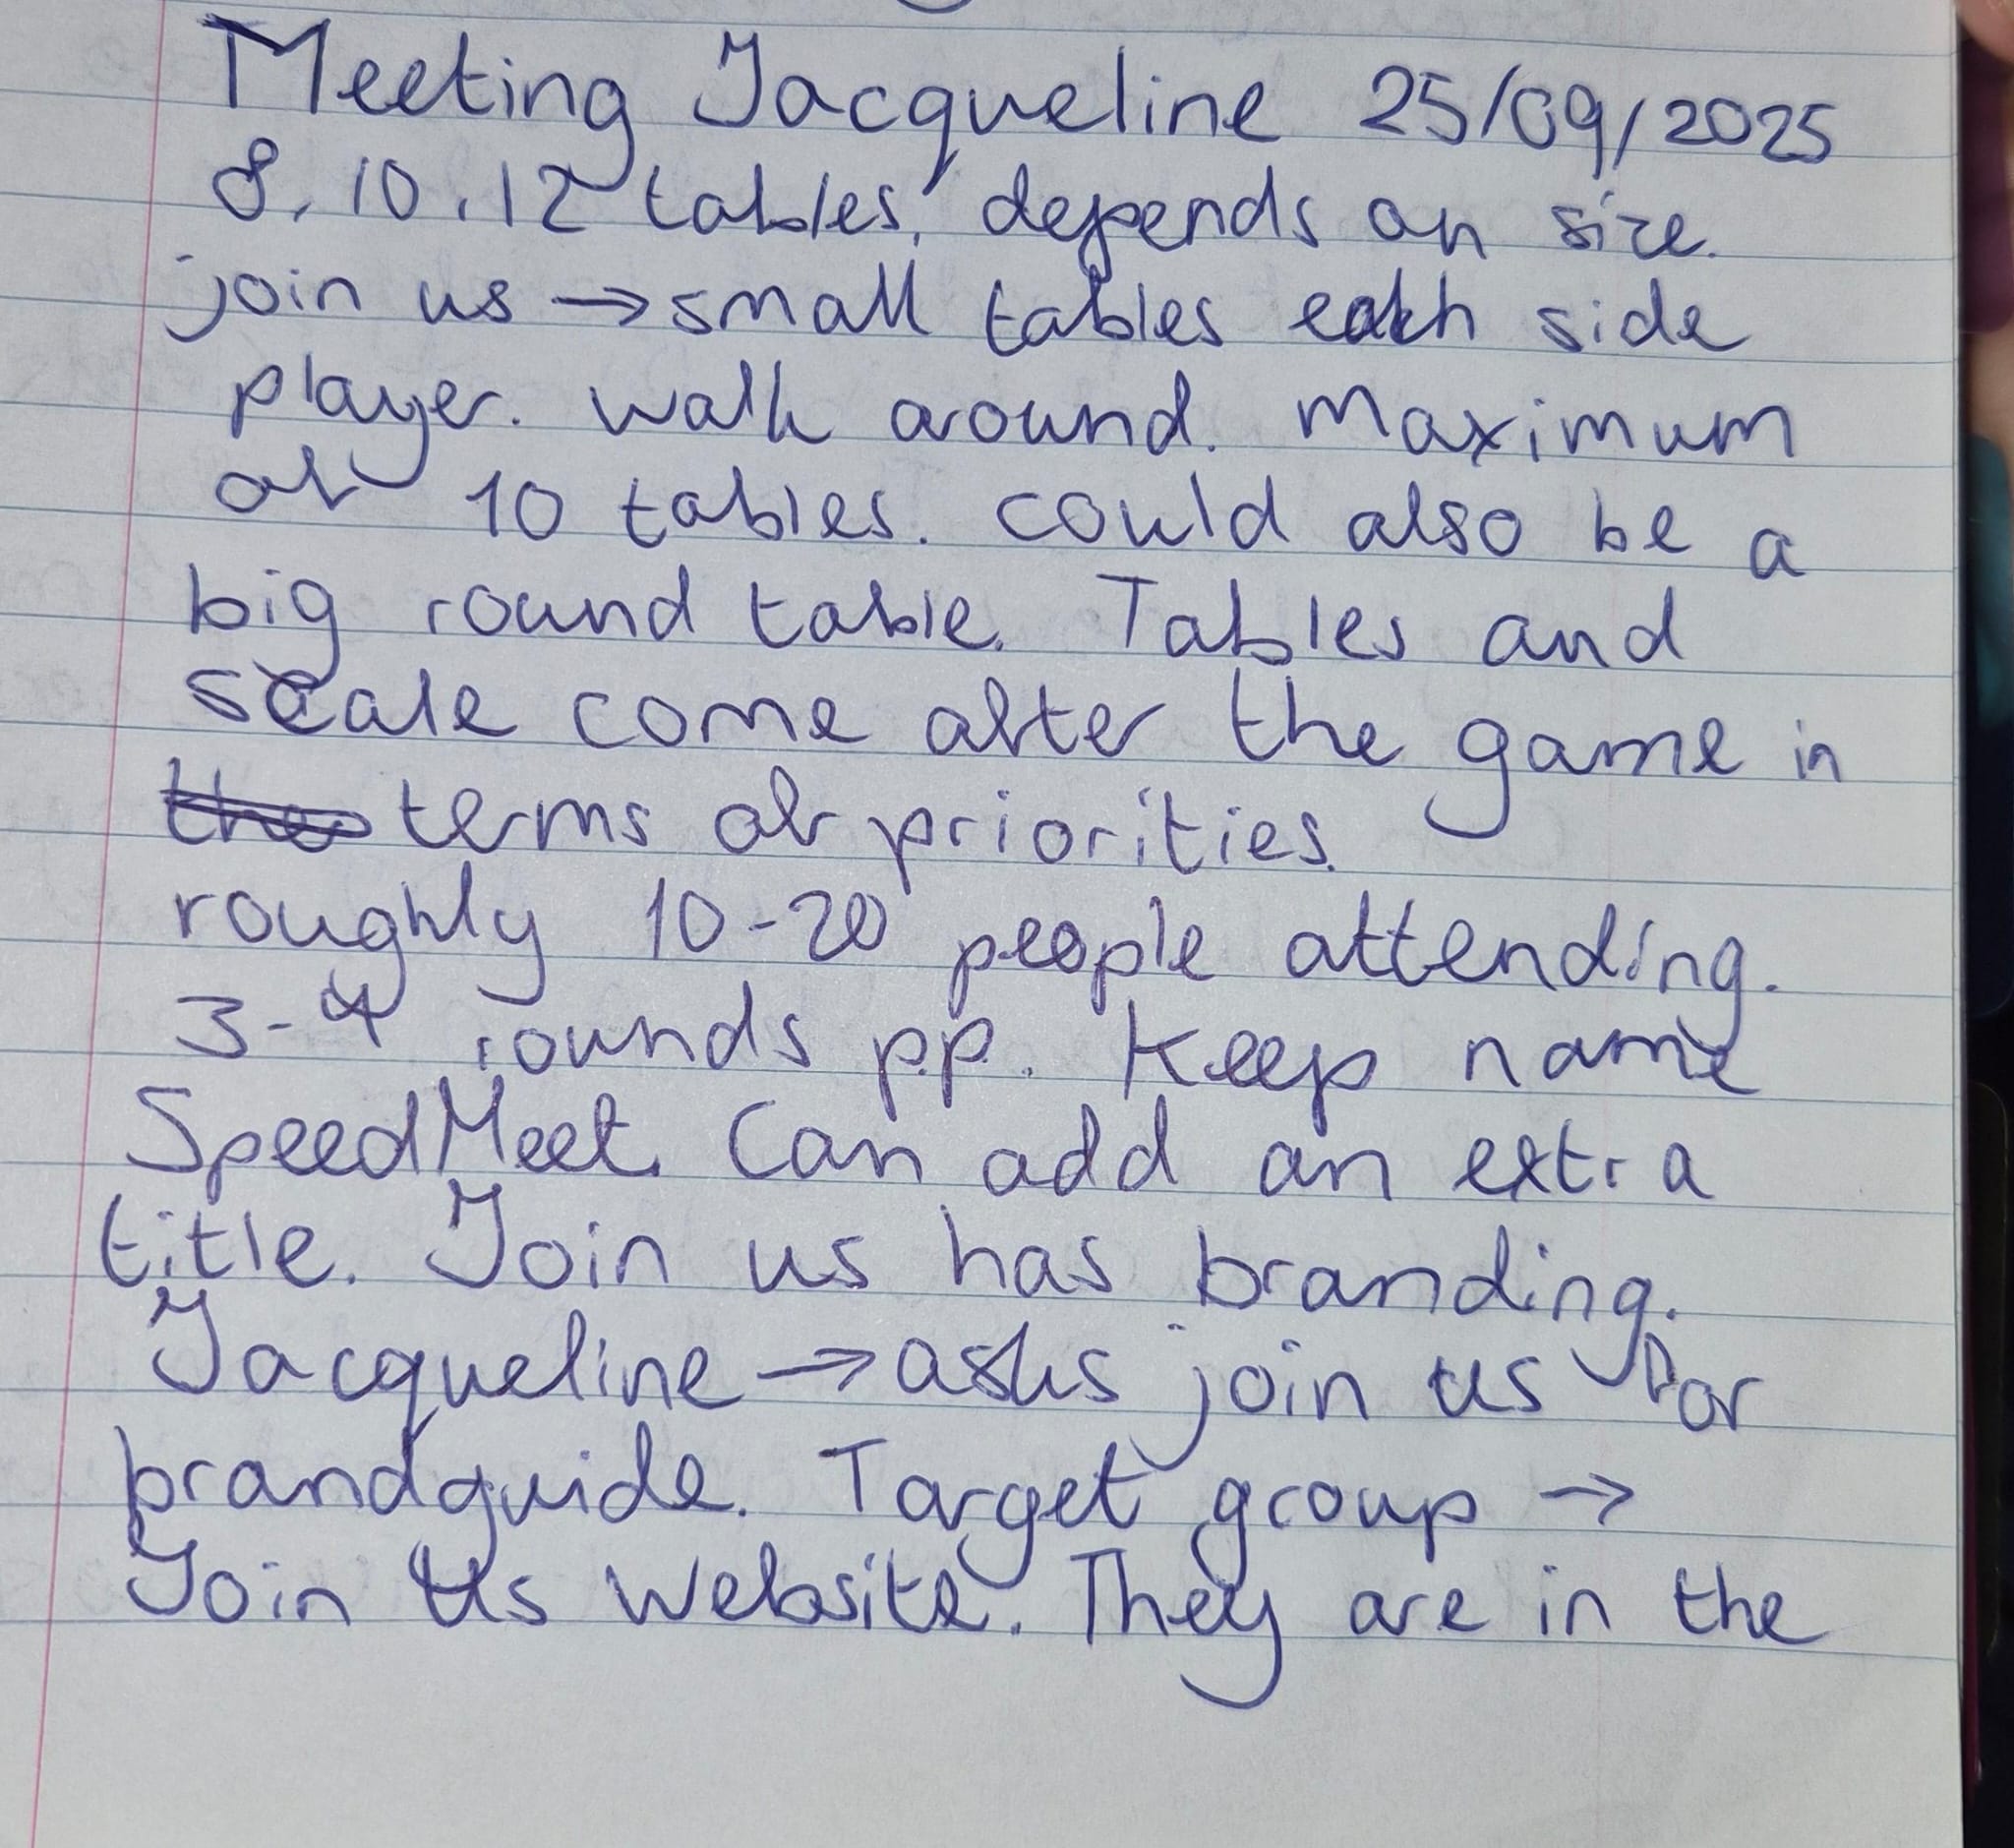 Meeting Jacqueline 25/09/2025
8, 10, 12 tables, depends on size.
join us → small tables each side
player. walk around. Maximum
of 10 tables. could also be a
big round table. Tables and
scale come after the game in
the terms of priorities.
roughly 10-20 people attending.
3-4 rounds p.p. Keep name
SpeedMeet. Can add an extra
title. Join us has branding.
Jacqueline → asks join us for
brandguide. Target group →
Join Us Website. They are in the